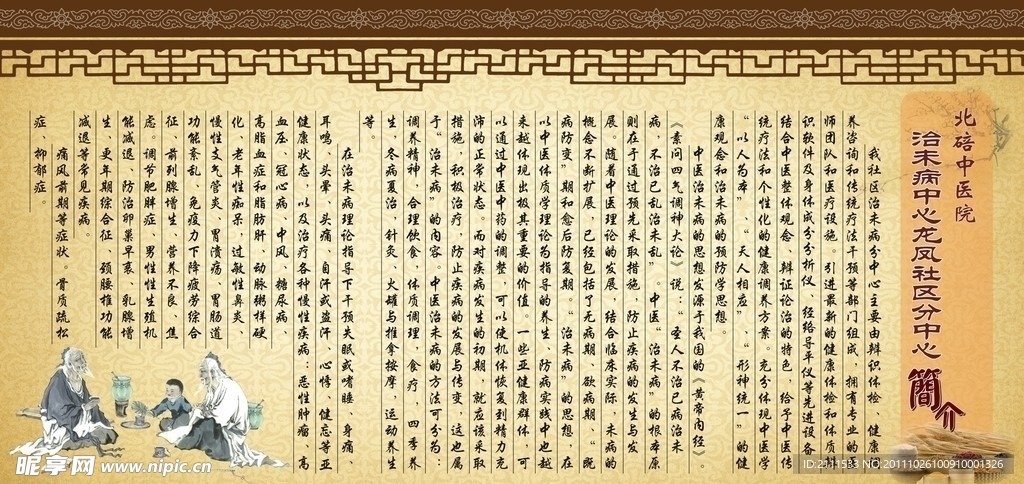 北碚中医院
治未病中心龙凤社区分中心
簡介
我社区治未病分中心主要由辩识体检、健康调
养咨询和传统疗法干预等部门组成，拥有专业的医
师团队和医疗设施。引进最新的健康体检和体质辩
识软件及身体成分分析仪、经络导平仪等先进设备，
结合中医整体观念、辩证论治的特色，给予中医传
统疗法和个性化的健康调养方案。充分体现中医学
“以人为本”、“天人相应”、“形神统一”的健
康观念和治未病的预防学思想。
中医治未病的思想发源于我国的《黄帝内经》。
《素问四气调神大论》说：“圣人不治已病治未
病，不治已乱治未乱”，中医“治未病”的根本原
则在于通过预先采取措施，防止疾病的发生与发
展。随着中医理论的发展，结合临床实际，未病的
概念不断扩展，已经包括了无病期、欲病期、“既
病防变”期和愈后防复期。“治未病”的思想，在
以中医体质学理论为指导的养生、防病实践中也越
来越体现出极其重要的价值。一些亚健康群体，可
以通过中医中药的调整，可以使机体恢复到精力充
沛的正常状态。而对疾病发生的初期，就应该采取
措施，积极治疗，防止疾病的发展与传变，这也属
于“治未病”的内容。中医治未病的方法可分为：
调养精神，合理饮食，体质调理，食疗，四季养
生，冬病夏治，针灸、火罐与推拿按摩，运动养生
等。
在治未病理论指导下干预失眠或嗜睡、身痛、
耳鸣、头晕、头痛、自汗或盗汗、心悸、健忘等亚
健康状态，以及治疗各种慢性疾病：恶性肿瘤、高
血压、冠心病、中风、糖尿病、
高脂血症和脂肪肝、动脉粥样硬
化、老年性痴呆，过敏性鼻炎、
慢性支气管炎、胃溃疡、胃肠道
功能紊乱、免疫力下降疲劳综合
征、前列腺增生、营养不良、焦
虑。调节肥胖症、男性性生殖机
能减退、防治卵巢早衰、乳腺增
生、更年期综合征、颈腰椎功能
减退等常见疾病。
痛风前期等症状。骨质疏松
症、抑郁症。
昵享网 www.nipic.cn
ID:2111533 NO:20111026100910001326